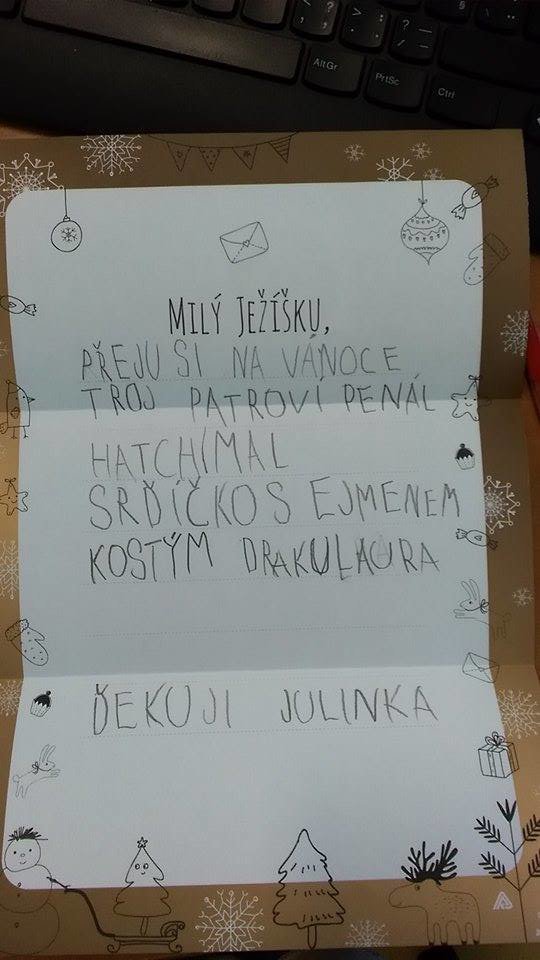 AltGr
PrtSc
Ctrl
MILÝ JEŽÍŠKU,
PŘEJU SI NA VÁNOCE
TROJ PATROVÍ PENÁL
HATCHÍMAL
SRĎÍČKO S EJMENEM
KOSTÝM DRAKULAURA
ĎEKUJI JULINKA